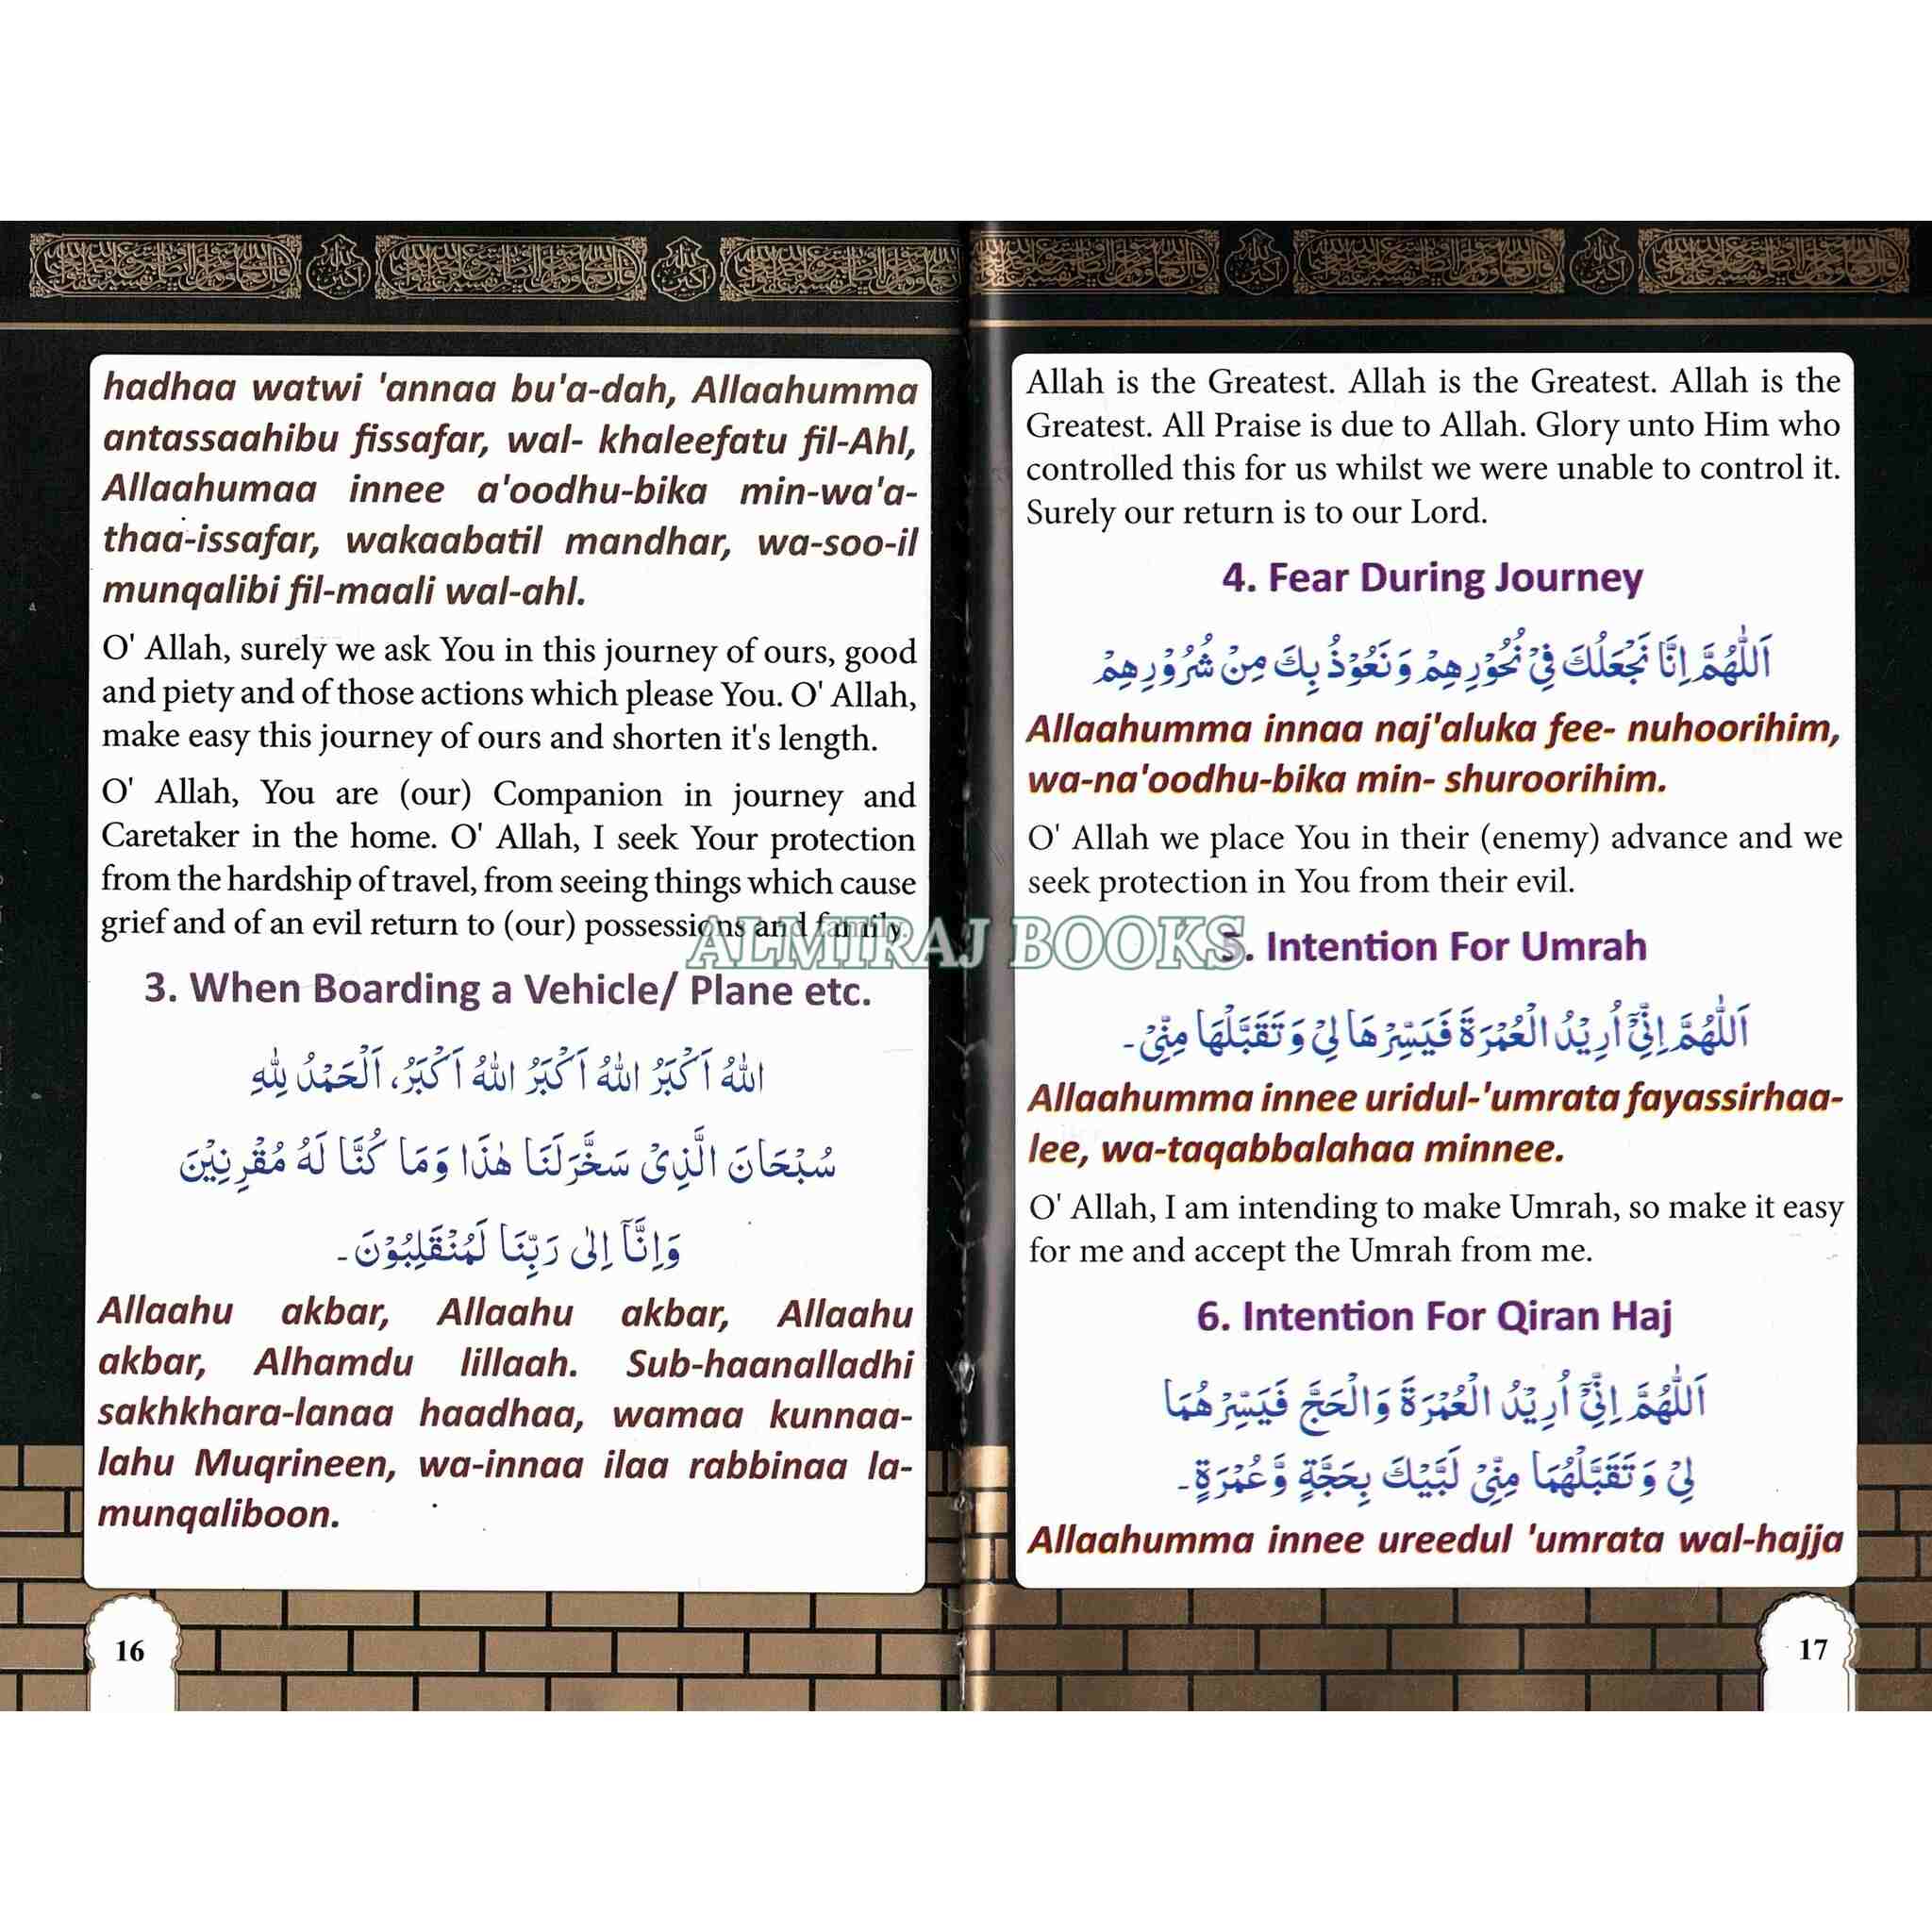 hadhaa watwi 'annaa bu'a-dah, Allaahumma
antassaahibu fissafar, wal- khaleefatu fil-Ahl,
Allaahumaa innee a'oodhu-bika min-wa'a-
thaa-issafar, wakaabatil mandhar, wa-soo-il
munqalibi fil-maali wal-ahl.
O' Allah, surely we ask You in this journey of ours, good
and piety and of those actions which please You. O' Allah,
make easy this journey of ours and shorten it's length.
O' Allah, You are (our) Companion in journey and
Caretaker in the home. O' Allah, I seek Your protection
from the hardship of travel, from seeing things which cause
grief and of an evil return to (our) possessions and family.
3. When Boarding a Vehicle/ Plane etc.
اَللهُ اَكْبَرُ اَللهُ اَكْبَرُ اَللهُ اَكْبَرُ، اَلْحَمْدُ لِلّٰهِ
سُبْحَانَ الَّذِىْ سَخَّرَلَنَا هٰذَا وَمَا كُنَّا لَهُ مُقْرِنِيْنَ
وَاِنَّآ اِلٰى رَبِّنَا لَمُنْقَلِبُوْنَ۔
Allaahu akbar, Allaahu akbar, Allaahu
akbar, Alhamdu lillaah. Sub-haanalladhi
sakhkhara-lanaa haadhaa, wamaa kunnaa-
lahu Muqrineen, wa-innaa ilaa rabbinaa la-
munqaliboon.
16
Allah is the Greatest. Allah is the Greatest. Allah is the
Greatest. All Praise is due to Allah. Glory unto Him who
controlled this for us whilst we were unable to control it.
Surely our return is to our Lord.
4. Fear During Journey
اَللّٰهُمَّ اِنَّا نَجْعَلُكَ فِىْ نُحُوْرِهِمْ وَنَعُوْذُ بِكَ مِنْ شُرُوْرِهِمْ
Allaahumma innaa naj'aluka fee- nuhoorihim,
wa-na'oodhu-bika min- shuroorihim.
O' Allah we place You in their (enemy) advance and we
seek protection in You from their evil.
ALMIRAJ BOOKS
5. Intention For Umrah
اَللّٰهُمَّ اِنِّىْٓ اُرِيْدُ الْعُمْرَةَ فَيَسِّرْهَا لِىْ وَتَقَبَّلْهَا مِنِّىْ۔
Allaahumma innee uridul-'umrata fayassirhaa-
lee, wa-taqabbalahaa minnee.
O' Allah, I am intending to make Umrah, so make it easy
for me and accept the Umrah from me.
6. Intention For Qiran Haj
اَللّٰهُمَّ اِنِّىْٓ اُرِيْدُ الْعُمْرَةَ وَالْحَجَّ فَيَسِّرْهُمَا
لِىْ وَتَقَبَّلْهُمَا مِنِّىْ لَبَّيْكَ بِحَجَّةٍ وَّعُمْرَةٍ۔
Allaahumma innee ureedul 'umrata wal-hajja
17